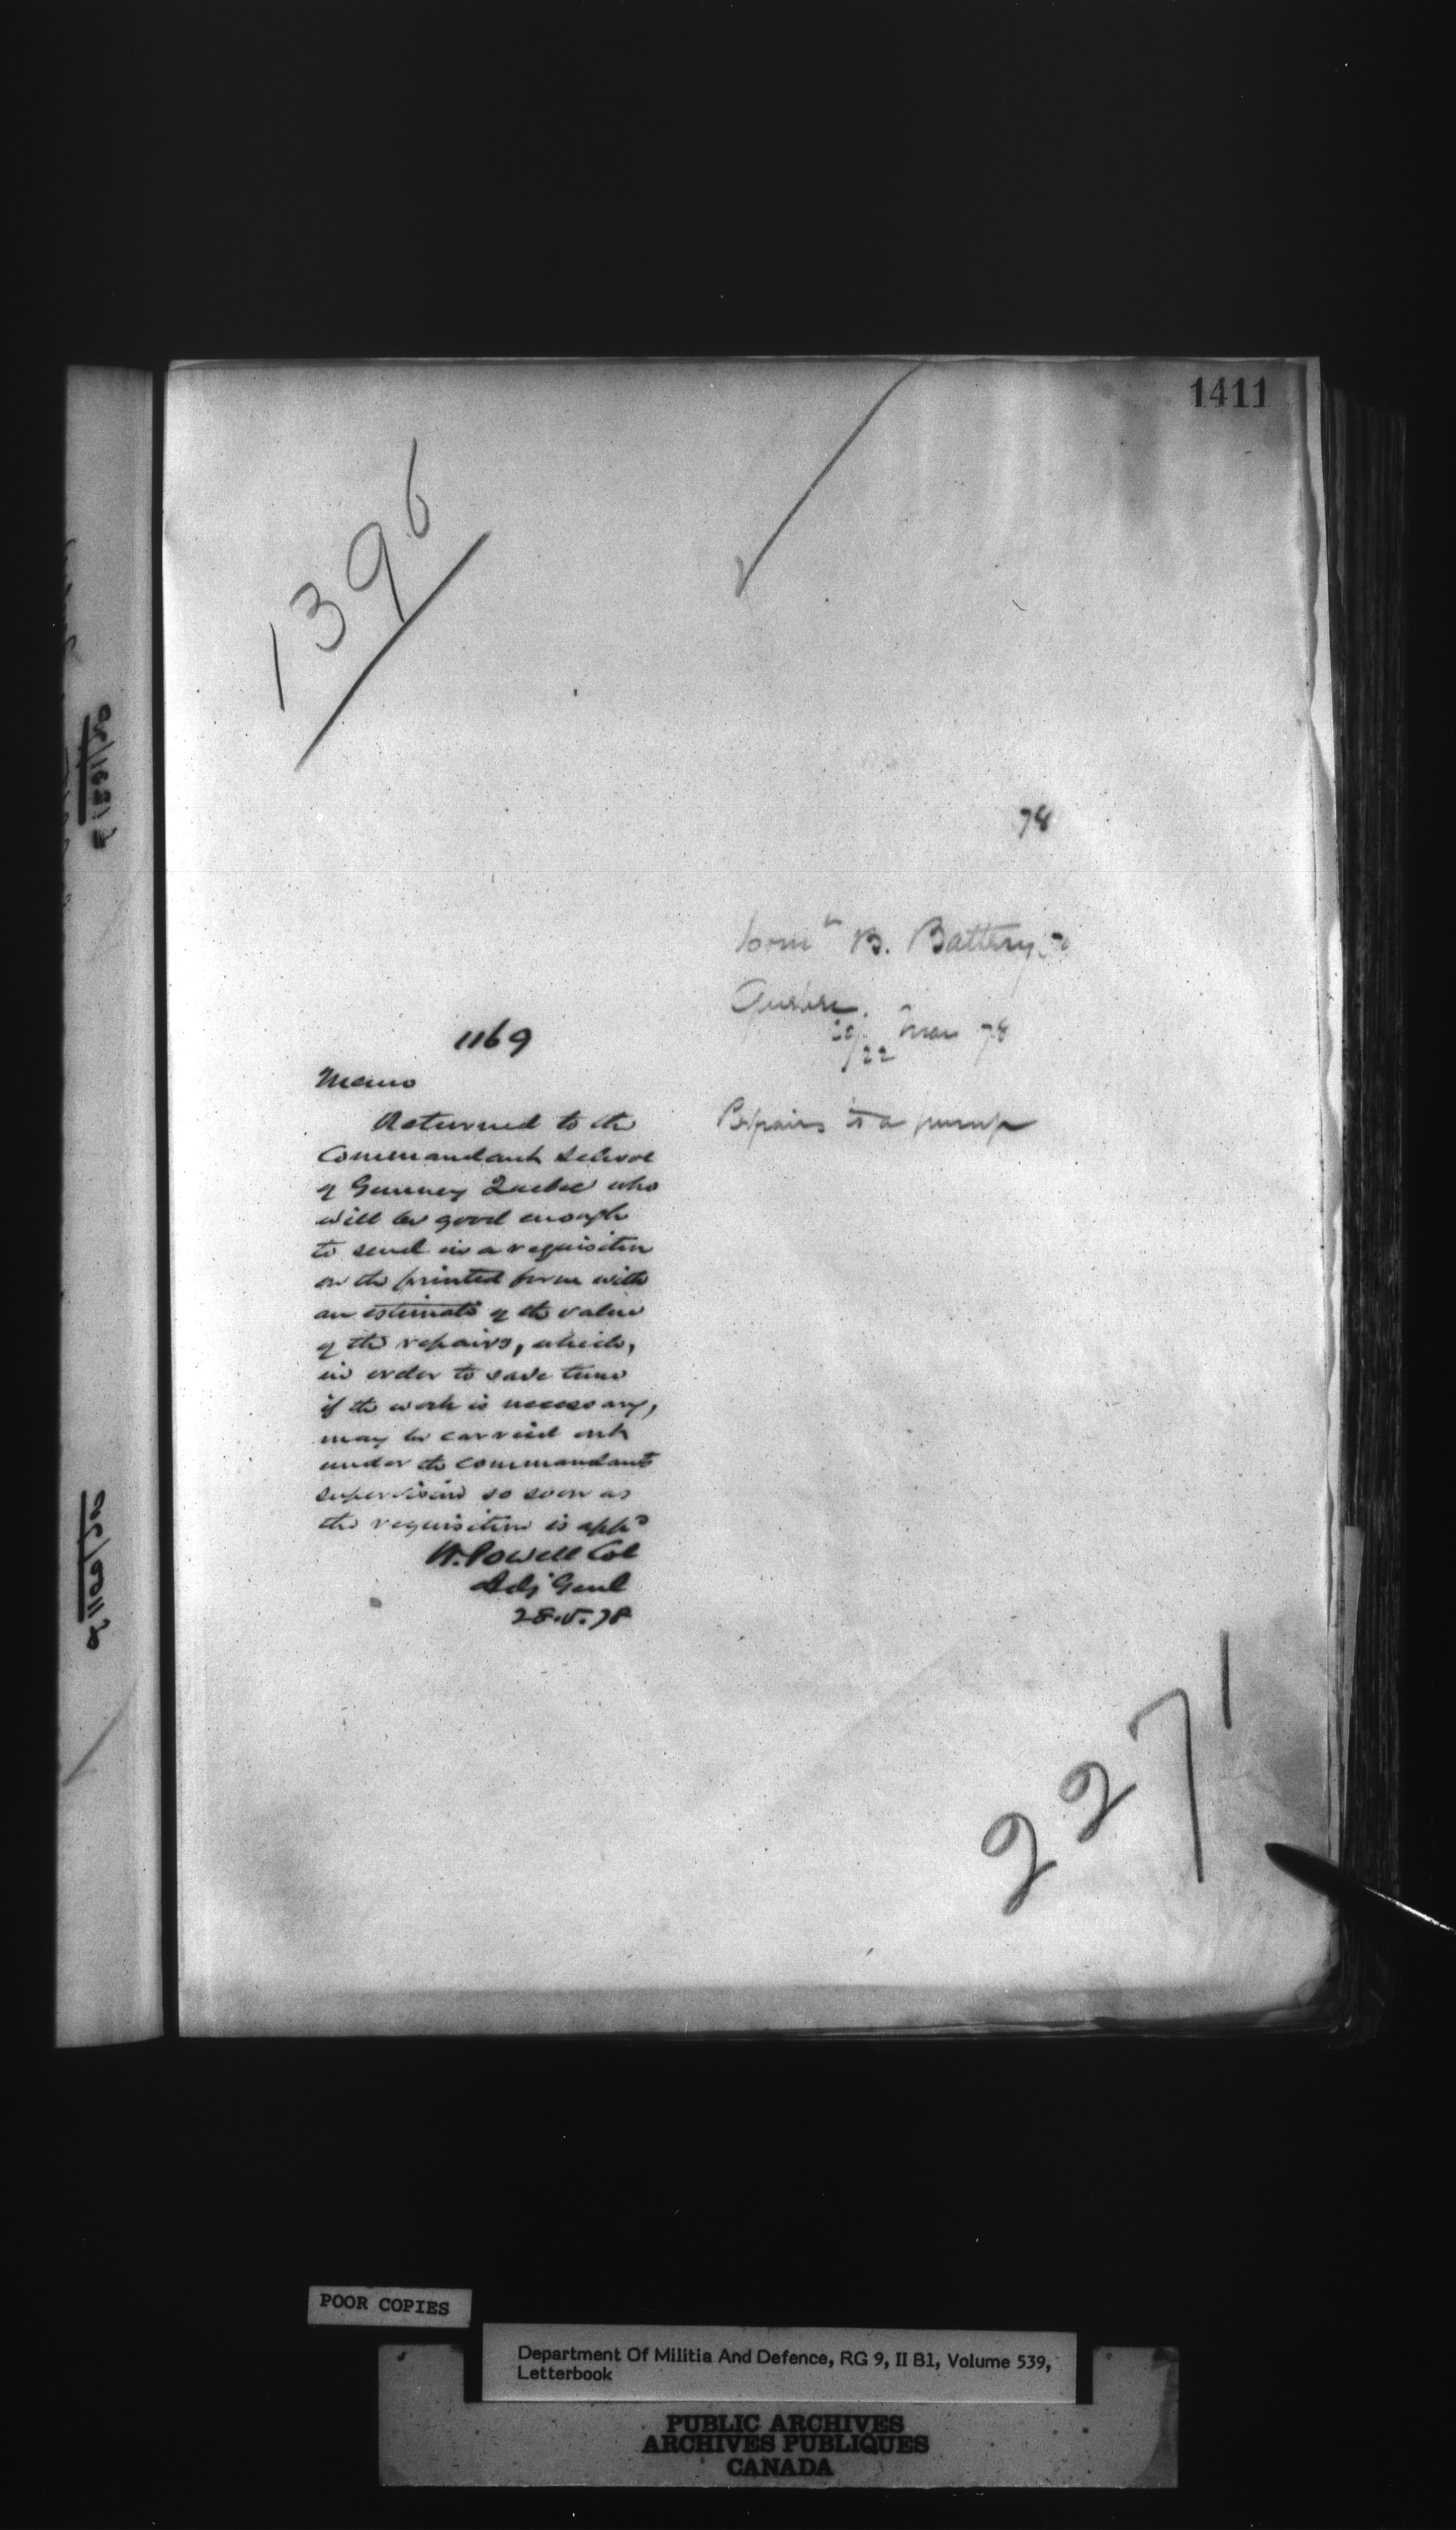 1411
1396
78
Comt B. Battery
Quebec.
20/22 Mar 78
Repairs to a pump
1169
Memo
Returned to the
Commandant School
of Gunnery Quebec who
will be good enough
to send in a requisition
on the printed form with
an estimate of the value
of the repairs, which,
in order to save time
if the work is necessary,
may be carried out
under the commandants
supervision so soon as
the requisition is appd
W. Powell Col
Adj Genl
28.5.78
2271
POOR COPIES
Department Of Militia And Defence, RG 9, II B1, Volume 539,
Letterbook
PUBLIC ARCHIVES
ARCHIVES PUBLIQUES
CANADA